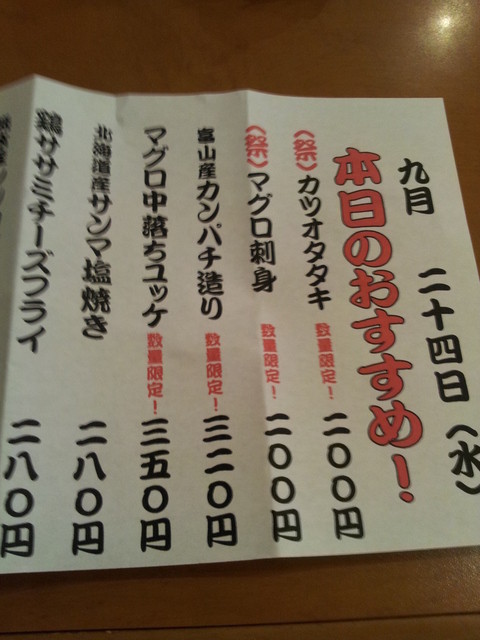 九月 二十四日(水)
本日のおすすめ!
(祭)カツオタタキ 数量限定! 二〇〇円
(祭)マグロ刺身 数量限定! 二〇〇円
富山産カンパチ造り 数量限定! 三二〇円
マグロ中落ちユッケ 数量限定! 三五〇円
北海道産サンマ塩焼き 二八〇円
鶏ササミチーズフライ 二八〇円